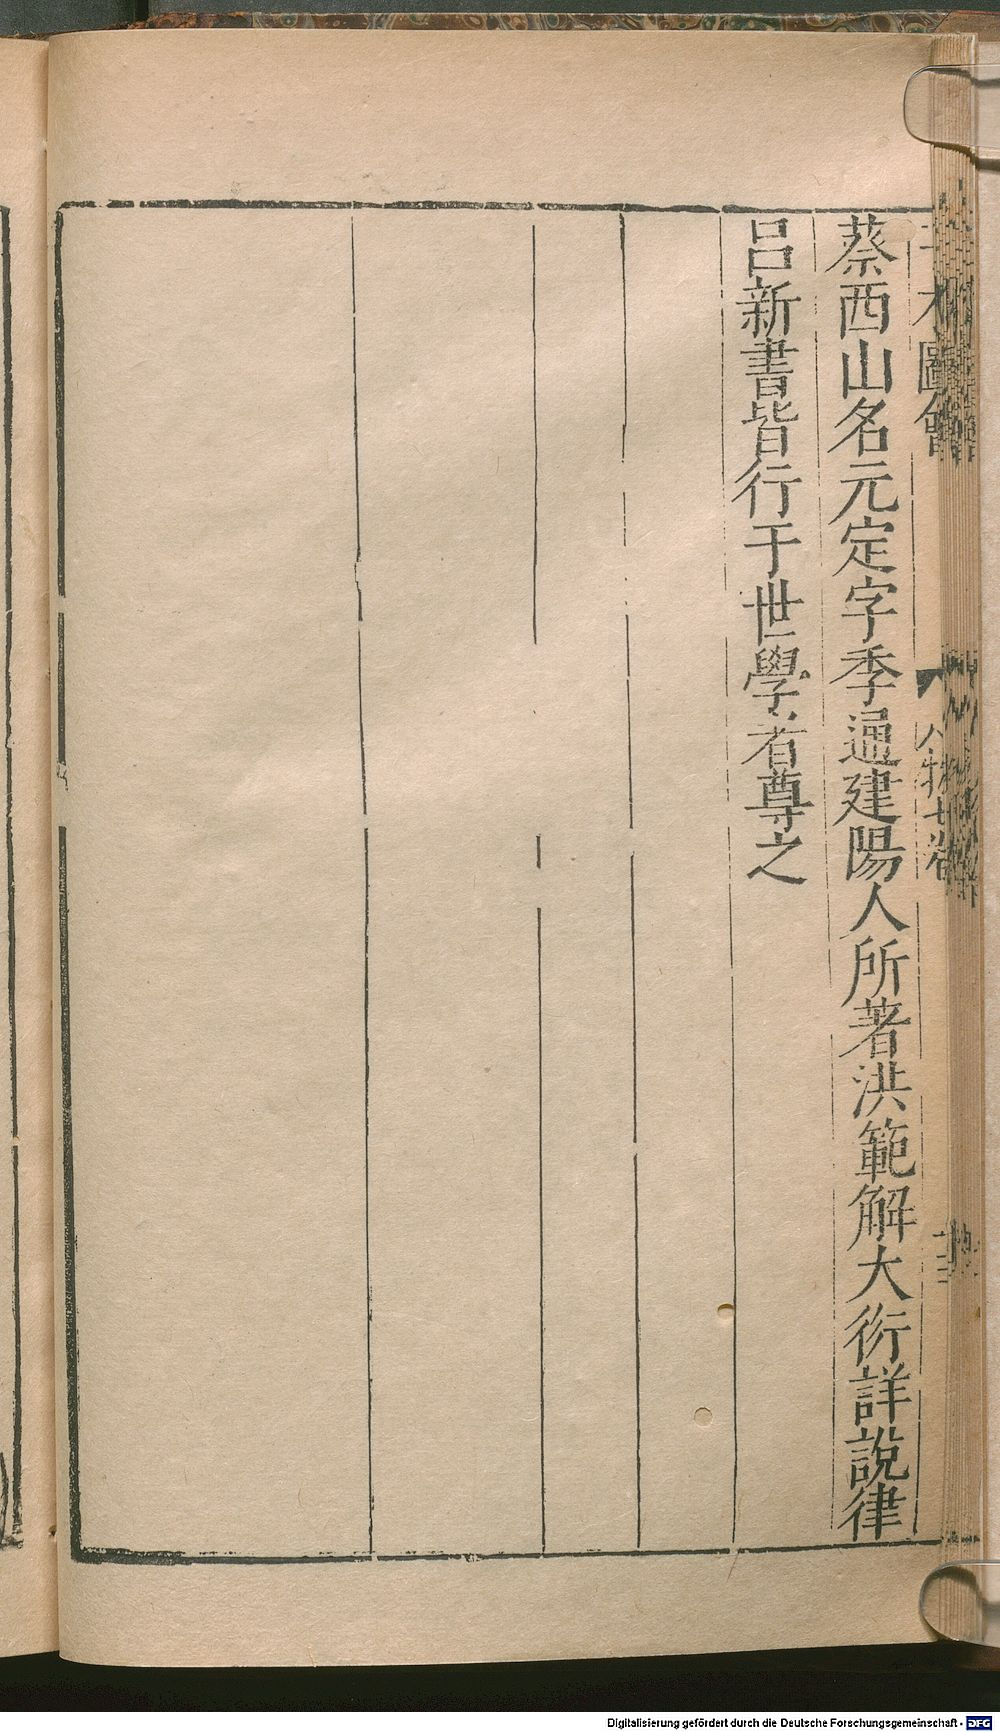 蔡西山名元定字季通建陽人所著洪範解大衍詳說律
呂新書皆行于世學者尊之
圖會
人物七卷
Digitalisierung gefördert durch die Deutsche Forschungsgemeinschaft - DFG